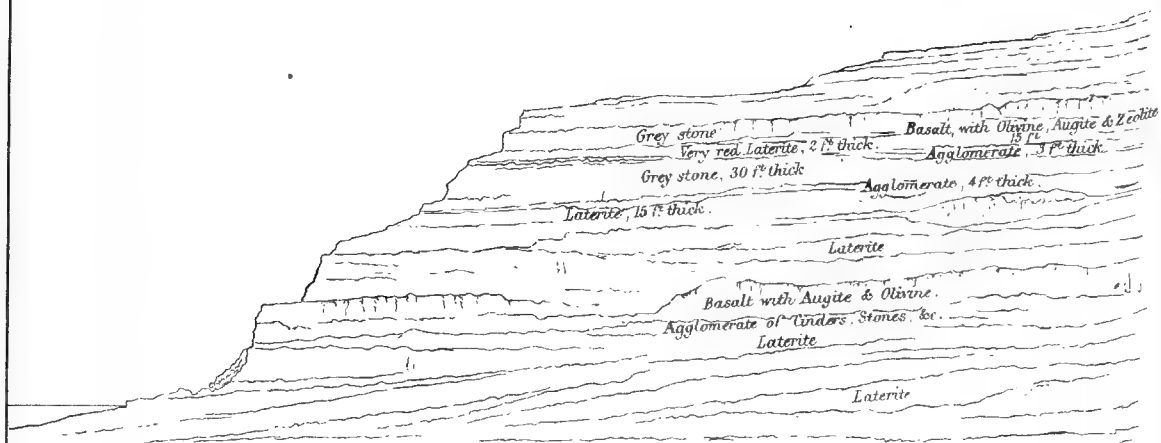 Grey stone
Basalt, with Olivine, Augite & Zeolite
15 ft
Very red Laterite, 2 ft. thick.
Agglomerate, 3 ft thick
Grey stone, 30 ft. thick
Agglomerate, 4 ft. thick.
Laterite, 15 ft. thick.
Laterite
Basalt with Augite & Olivine.
Agglomerate of Cinders, Stones, &c.
Laterite
Laterite